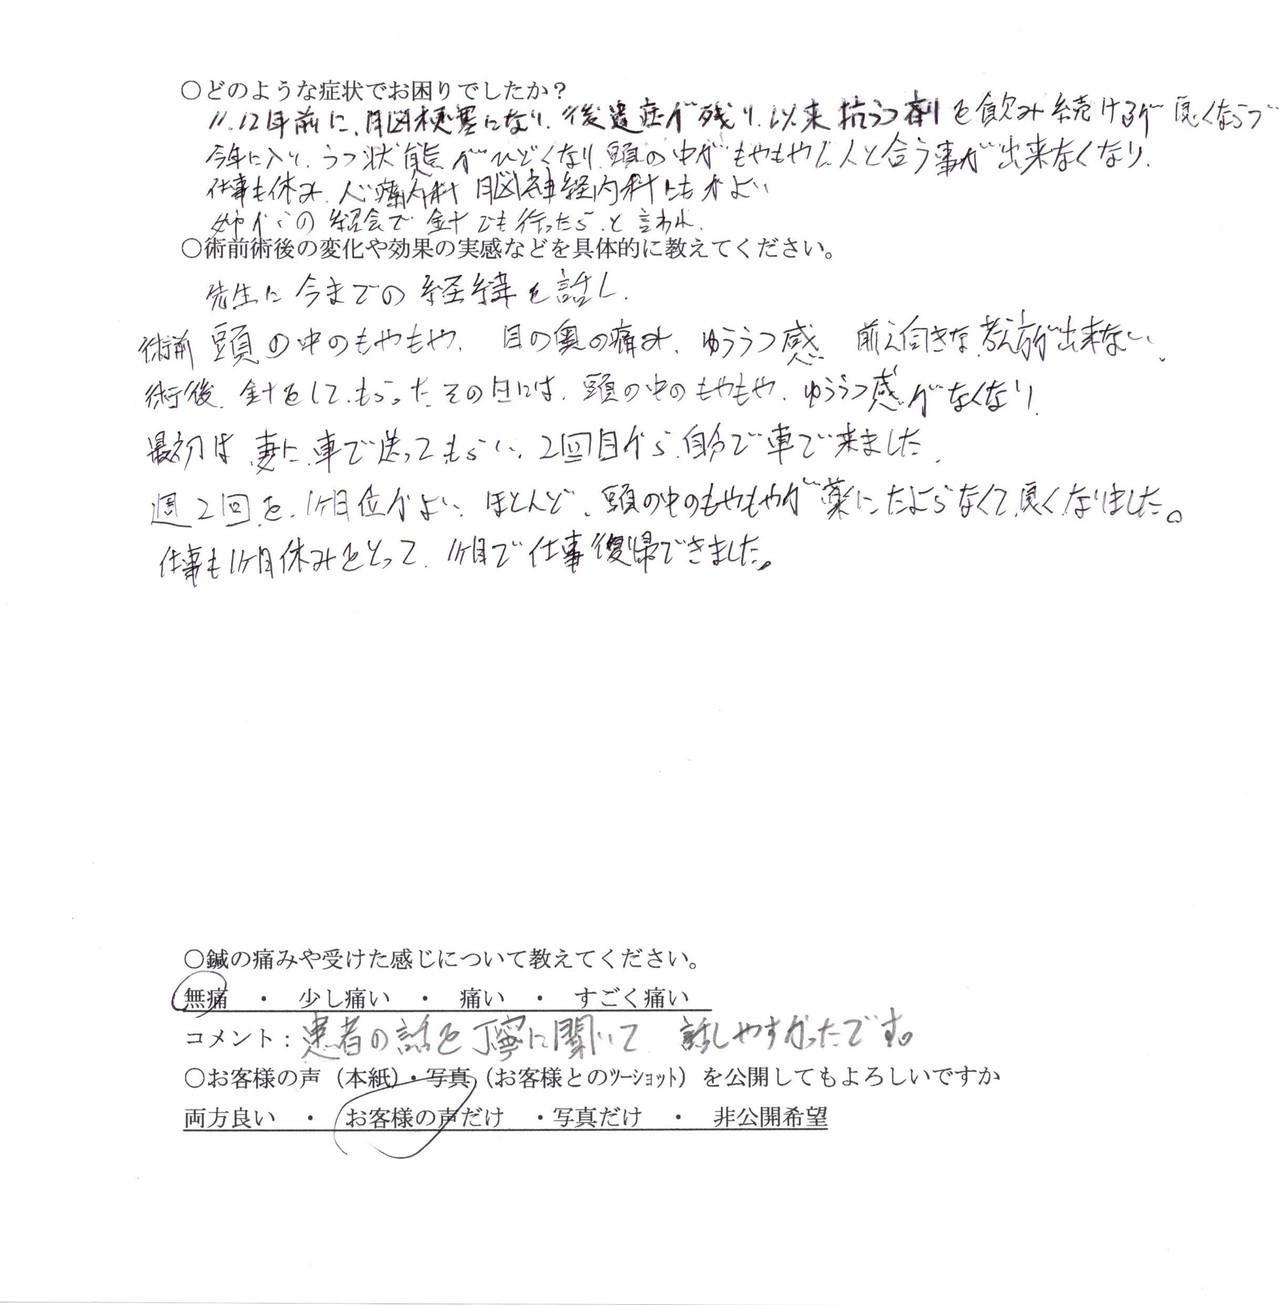 ○どのような症状でお困りでしたか？
11.12年前に、脳梗塞になり、後遺症が残り、以来抗うつ剤を飲み続けるが良くならず
今年に入り、うつ状態がひどくなり、頭の中がもやもやし人と合う事が出来なくなり、
仕事も休み、心療内科 脳神経内科にもかよい
姉からの紹会で針でも行ったらと言われ、
○術前術後の変化や効果の実感などを具体的に教えてください。
先生に今までの経緯を話し、
術前 頭の中のもやもや、目の奥の痛み、ゆううつ感 前え向きな考え方が出来ない、
術後、針をしてもらったその日には、頭の中のもやもや、ゆううつ感がなくなり、
最初は妻に車で送ってもらい、2回目から自分で車で来ました、
週2回を、1ヶ月位かよい、ほとんど、頭の中のもやもやが薬にたよらなくて良くなりました。
仕事も1ヶ月休みをとって、1ヶ月で仕事復帰できました。
○鍼の痛みや受けた感じについて教えてください。
無痛 ・ 少し痛い ・ 痛い ・ すごく痛い
コメント：患者の話を丁寧に聞いて 話しやすかったです。
○お客様の声（本紙）・写真（お客様とのﾂｰｼｮｯﾄ）を公開してもよろしいですか
両方良い ・ お客様の声だけ ・写真だけ ・ 非公開希望